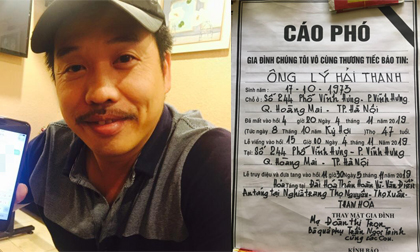 CÁO PHÓ
GIA ĐÌNH CHÚNG TÔI VÔ CÙNG THƯƠNG TIẾC BÁO TIN:
ÔNG LÝ HẢI THANH
Sinh năm : 17-10-1973
Chỗ ở : Số 244 Phố Vĩnh Hưng - P. Vĩnh Hưng
Q. Hoàng Mai - TP. Hà Nội
Đã mất vào hồi 4 giờ 20 Ngày 4 tháng 11 năm 2019
(Tức ngày 8 Tháng 10 năm Kỷ Hợi Thọ 47 tuổi
Lễ viếng vào hồi 15 giờ Ngày 4 tháng 11 năm 2019
Tại Số 244 Phố Vĩnh Hưng - P. Vĩnh Hưng
Q. Hoàng Mai - TP. Hà Nội
Lễ truy điệu và đưa tang vào hồi 11 giờ 30 Ngày 5 tháng 11 năm 2019
Hỏa táng tại Đài Hóa Thân Hoàn Vũ Văn Điển
An táng tại Nghĩa trang Thọ Nguyên - Thọ Xuân -
THANH HÓA
THAY MẶT GIA ĐÌNH
Mẹ Đoàn Thị
Bà quả phụ Trần Ngọc Trinh
cùng các con.
KÍNH BÁO